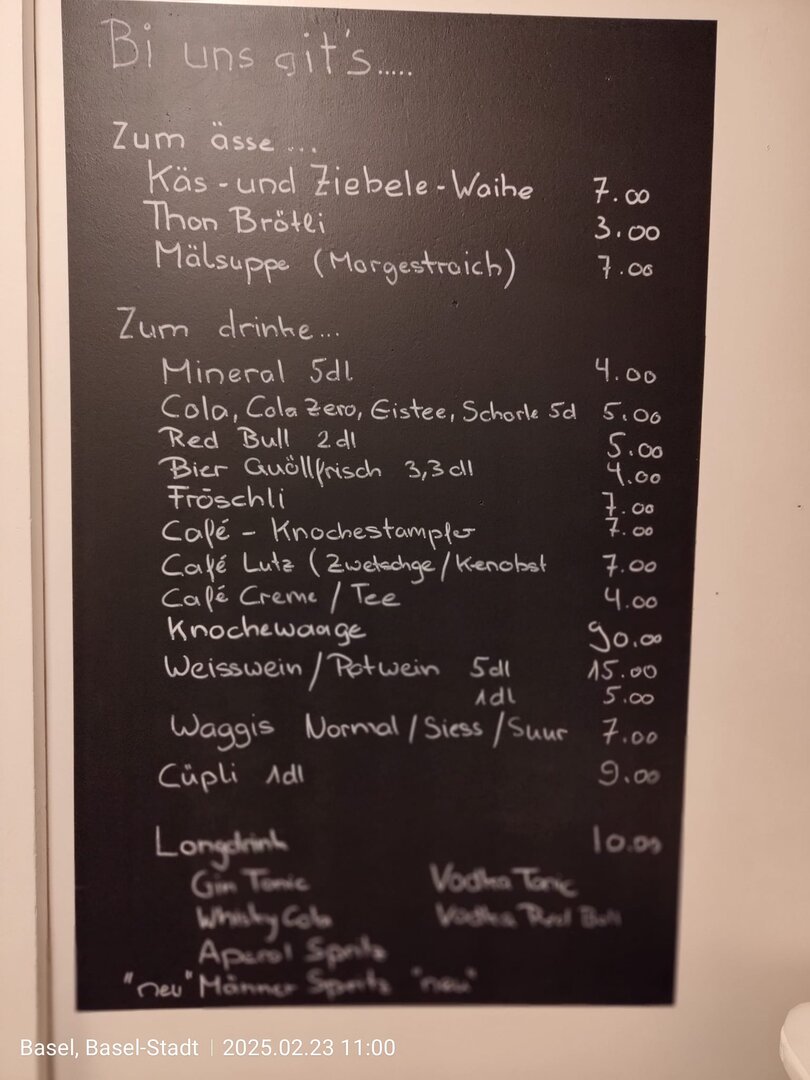 Bi uns git's.....
Zum ässe...
Käs-und Ziebele-Waihe 7.00
Thon Brötli 3.00
Mälsuppe (Morgestraich) 7.00
Zum drinke...
Mineral 5dl 4.00
Cola, Cola Zero, Eistee, Schorle 5d 5.00
Red Bull 2dl 5.00
Bier Quöllfrisch 3,3dl 4.00
Fröschli 7.00
Café - Knochestampfer 7.00
Café Lutz (Zwetschge/Kenobst 7.00
Café Creme / Tee 4.00
Knochewaage 90.00
Weisswein/Rotwein 5dl 15.00
1dl 5.00
Waggis Normal/Siess/Suur 7.00
Cüpli 1dl 9.00
Longdrink 10.00
Gin Tonic Vodka Tonic
Whisky Cola Vodka Red Bull
Aperol Spritz
"neu" Männer Spritz "neu"
Basel, Basel-Stadt | 2025.02.23 11:00